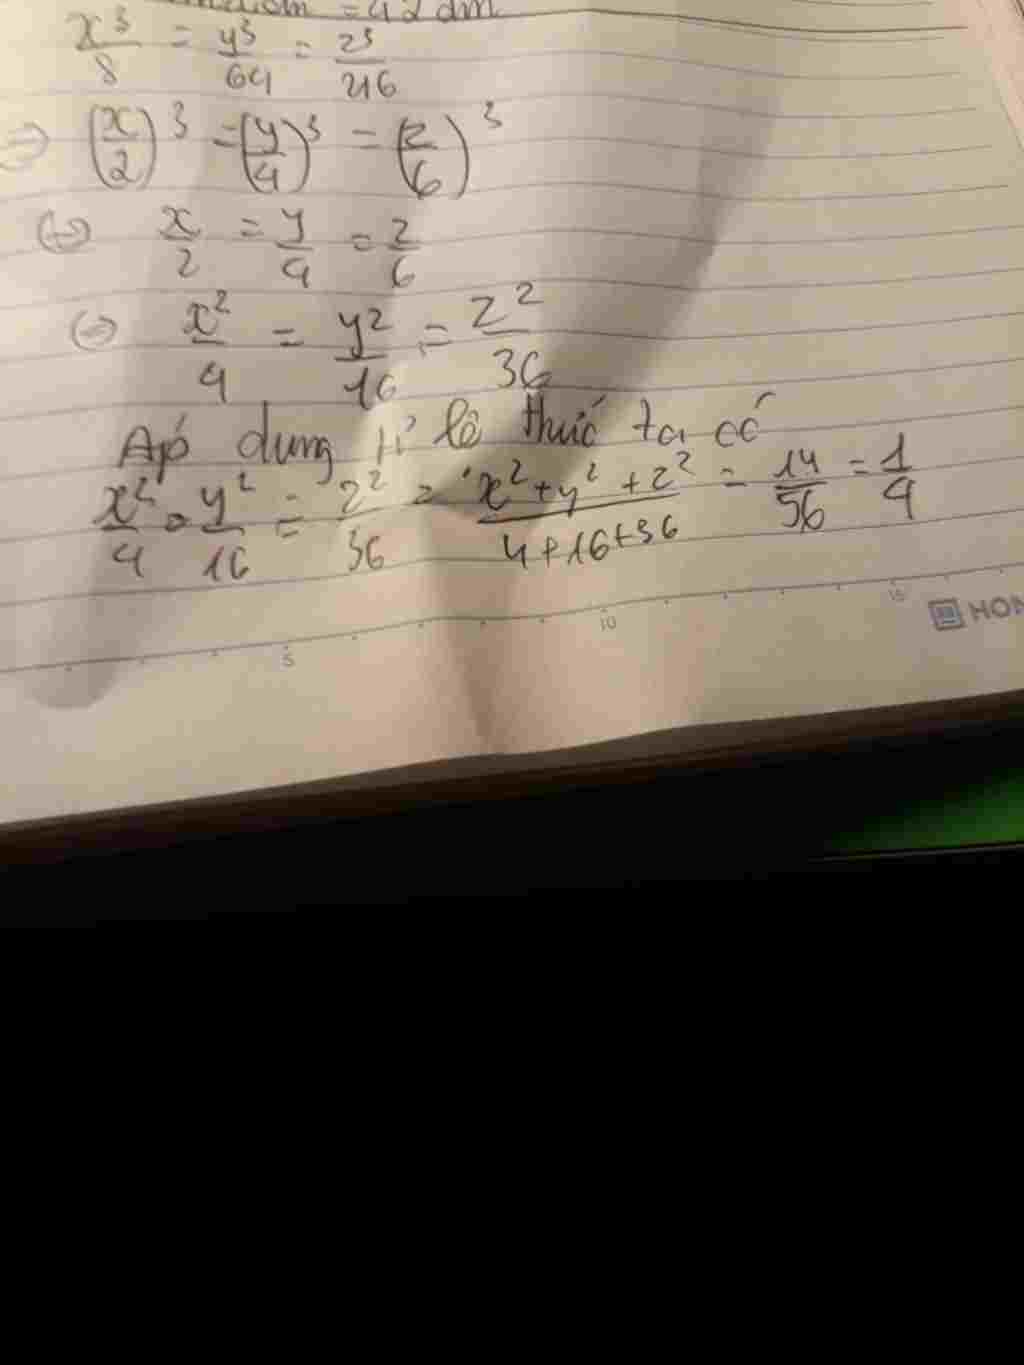 = 42 dm
x³/8 = y³/64 = z³/216
=> (x/2)³ = (y/4)³ = (z/6)³
(=) x/2 = y/4 = z/6
(=) x²/4 = y²/16 = z²/36
Áp dụng tỉ lệ thức ta có
x²/4 = y²/16 = z²/36 = x²+y²+z²/4+16+36 = 14/56 = 1/4
5 10 15
HON